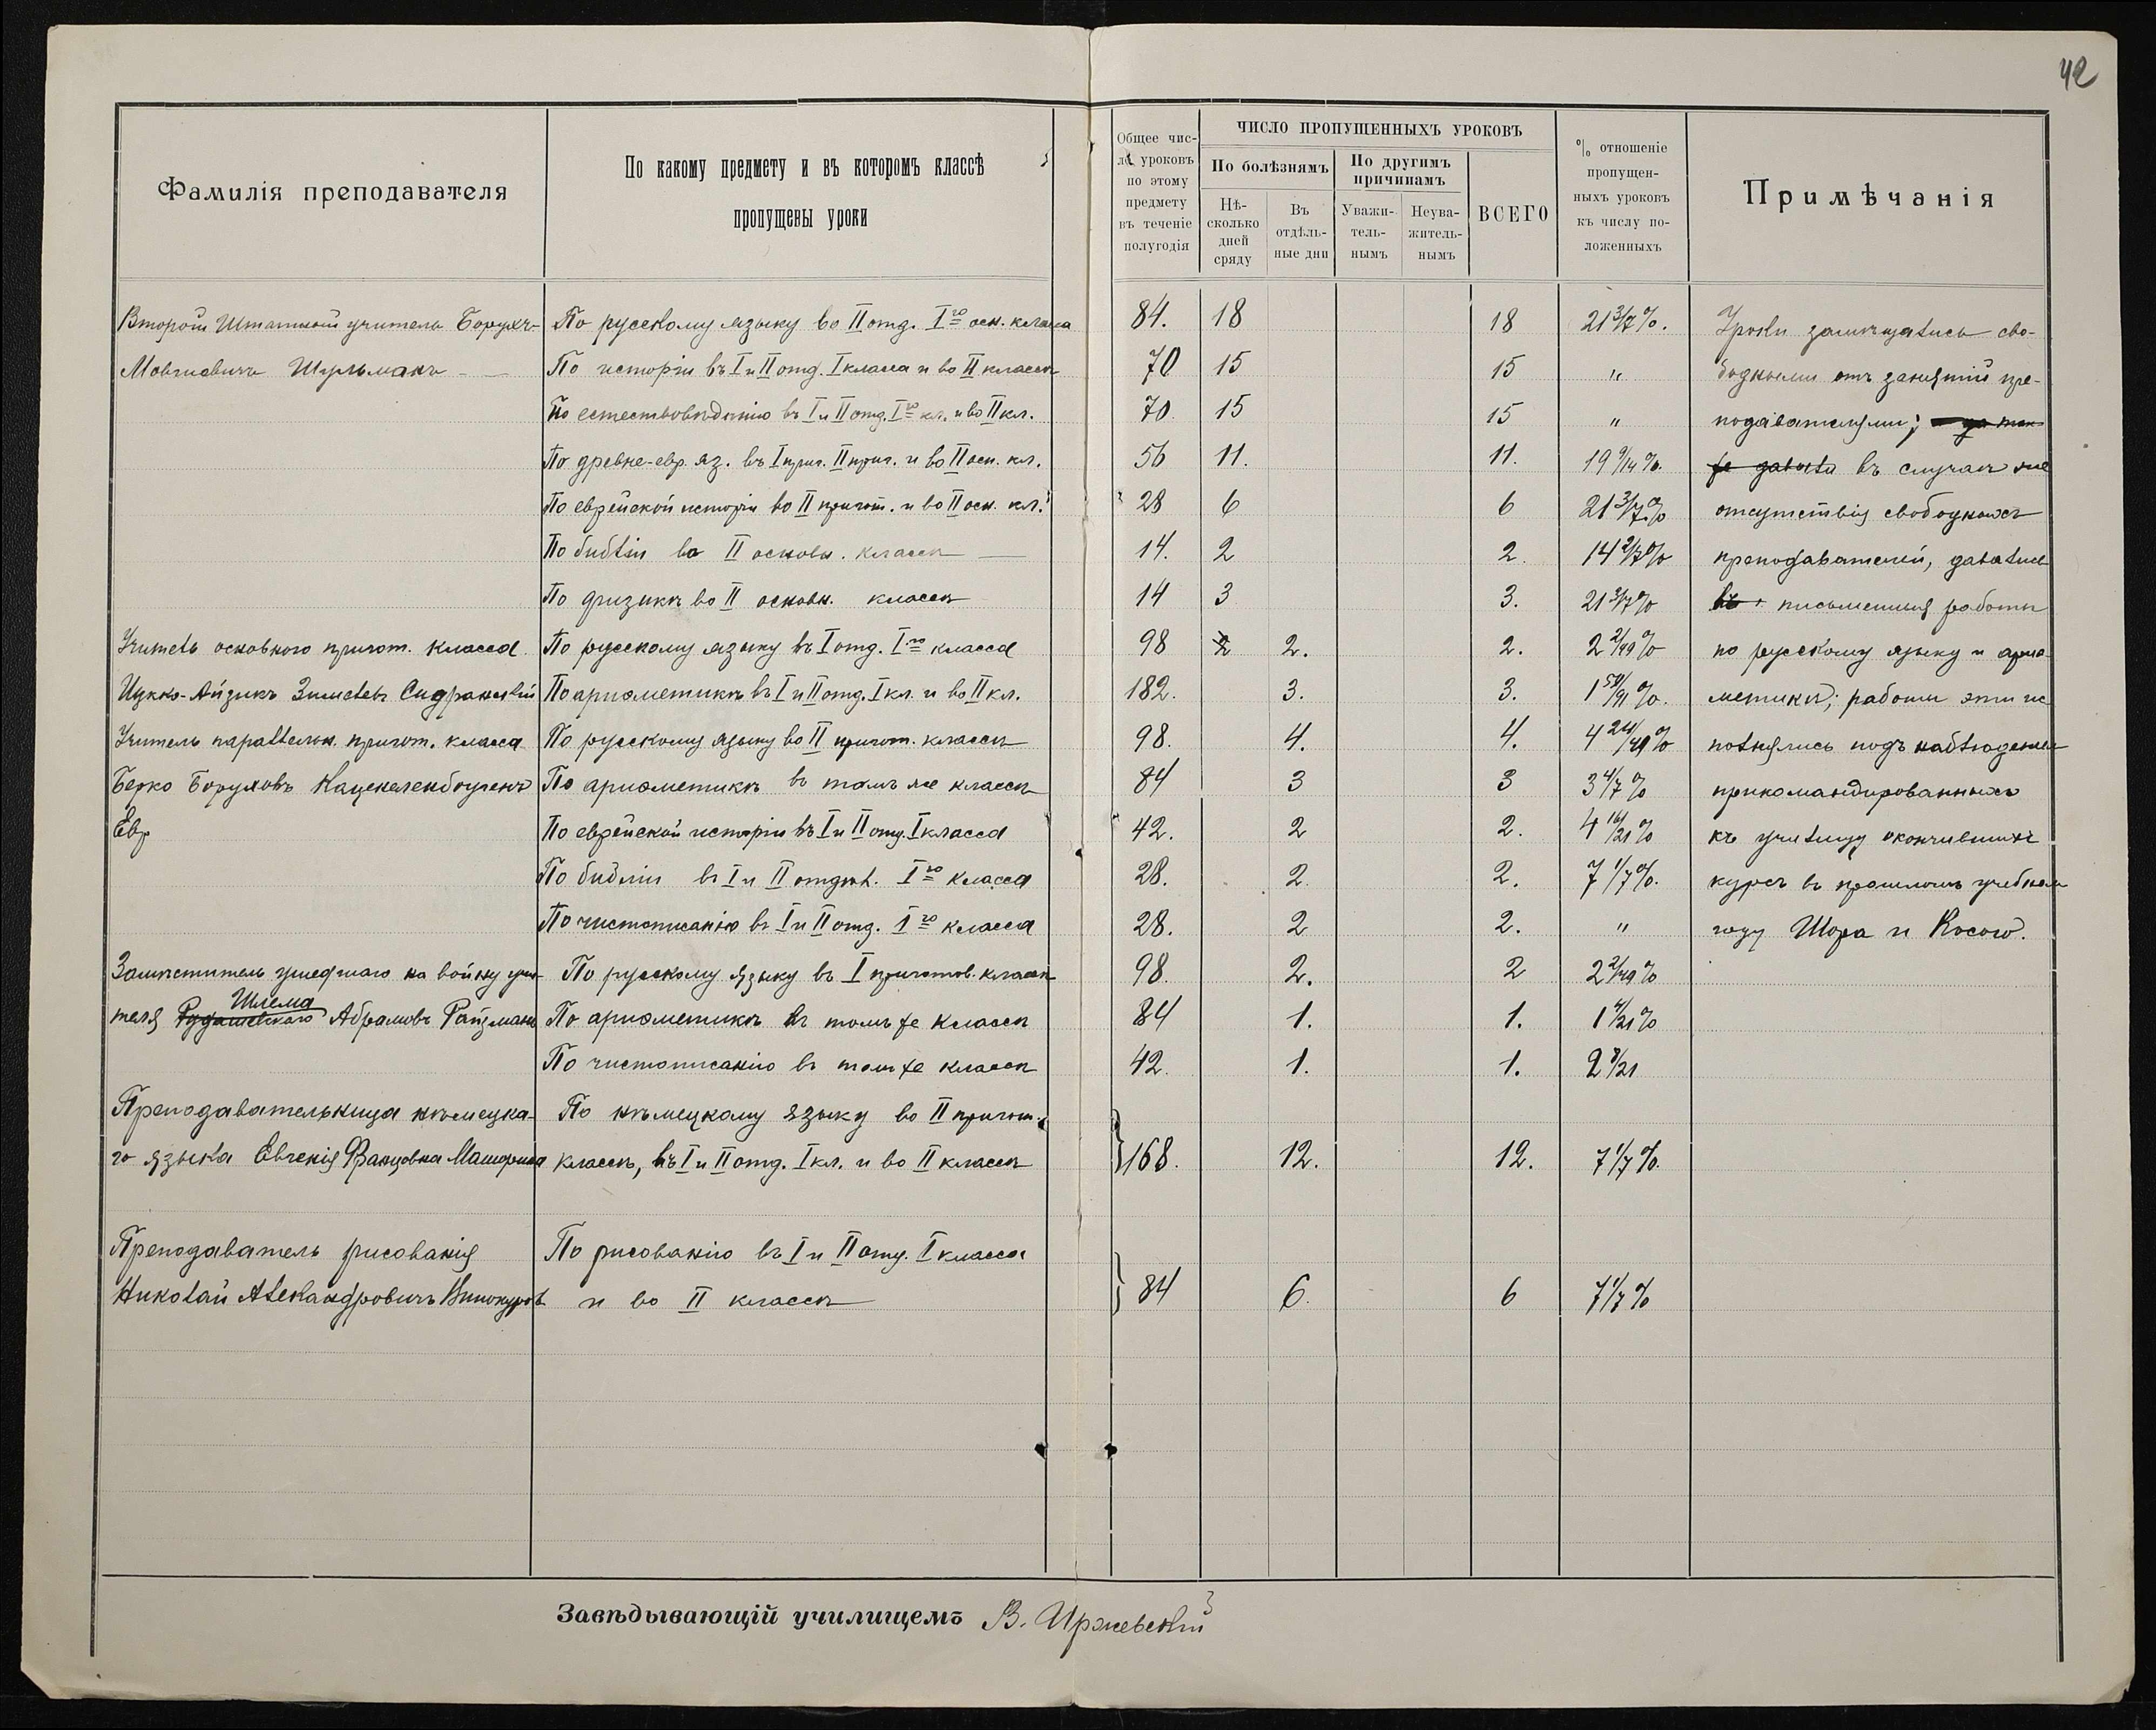 42
Фамилія преподавателя
По какому предмету и въ которомъ классѣ
пропущены уроки
Общее чис-
ло уроковъ
по этому
предмету
въ теченіе
полугодія
ЧИСЛО ПРОПУЩЕННЫХЪ УРОКОВЪ
По болѣзнямъ
По другимъ
причинамъ
Нѣ-
сколько
дней
сряду
Въ
отдѣль-
ные дни
Уважи-
тель-
нымъ
Неува-
житель-
нымъ
ВСЕГО
% отношеніе
пропущен-
ныхъ уроковъ
къ числу по-
ложенныхъ
Примѣчанія
Второй Штатный учитель Борухъ- По русскому языку во II отд. I го осн. класса 84. 18 18 21 3/7 %. Уроки замѣщались сво-
Мовшевичъ Шульманъ По исторіи въ I и II отд. I класса и во II классѣ 70 15 15 " бодными отъ занятій пре-
По естествовѣдѣнію въ I и II отд. I го кл. и во II кл. 70. 15 15 " подавателями;
По древне-евр. яз. въ I приг. II приг. и во II осн. кл. 56 11. 11. 19 9/14 %. въ случаѣ же
По еврейской исторіи во II пригот. и во II осн. кл. 28 6 6 21 3/7 % отсутствія свободныхъ
По библіи во II основн. классѣ 14. 2 2. 14 2/7 % преподавателей, давались
По физикѣ во II основн. классѣ 14 3 3. 21 3/7 % письменныя работы
Учитель основного пригот. класса По русскому языку въ I отд. I го класса 98 2 2. 2. 2 2/49 % по русскому языку и ариѳ-
Ицко-Айзикъ Зимелевъ Сидранскій По ариѳметикѣ въ I и II отд. I кл. и во II кл. 182. 3. 3. 1 59/91 %. метикѣ; работы эти ис
Учитель параллельн. пригот. класса По русскому языку во II пригот. классѣ 98. 4. 4. 4 24/49 % полнялись подъ наблюденіем
Берко Боруховъ Каценеленбогенъ По ариѳметикѣ въ томъ же классѣ 84 3 3 3 4/7 % прикомандированныхъ
Евр По еврейской исторіи въ I и II отд. I класса 42. 2 2. 4 16/21 % къ училищу окончившихъ
По библіи въ I и II отдѣл. I го класса 28. 2 2. 7 1/7 %. курсъ въ прошломъ учебном
По чистописанію въ I и II отд. I го класса 28. 2 2. " году Шора и Косого.
Замѣститель ушедшаго на войну учи- По русскому языку въ I приготов. классѣ 98. 2. 2 2 2/49 %
Шлема
теля Рудашевскаго Абрамовъ Райзманъ По ариѳметикѣ въ томъ же классѣ 84 1. 1. 1 4/21 %
По чистописанію въ томъ же классѣ 42. 1. 1. 2 8/21
Преподавательница нѣмецка- По нѣмецкому языку во II пригот.
го языка Евгенія Францовна классѣ, въ I и II отд. I кл. и во II классѣ 168. 12. 12. 7 1/7 %.
Преподаватель рисованія По рисованію въ I и II отд. I класса
Николай Александровичъ Винокуров и во II классѣ 84 6. 6 7 1/7 %
Завѣдывающій училищемъ В. Иржевскій